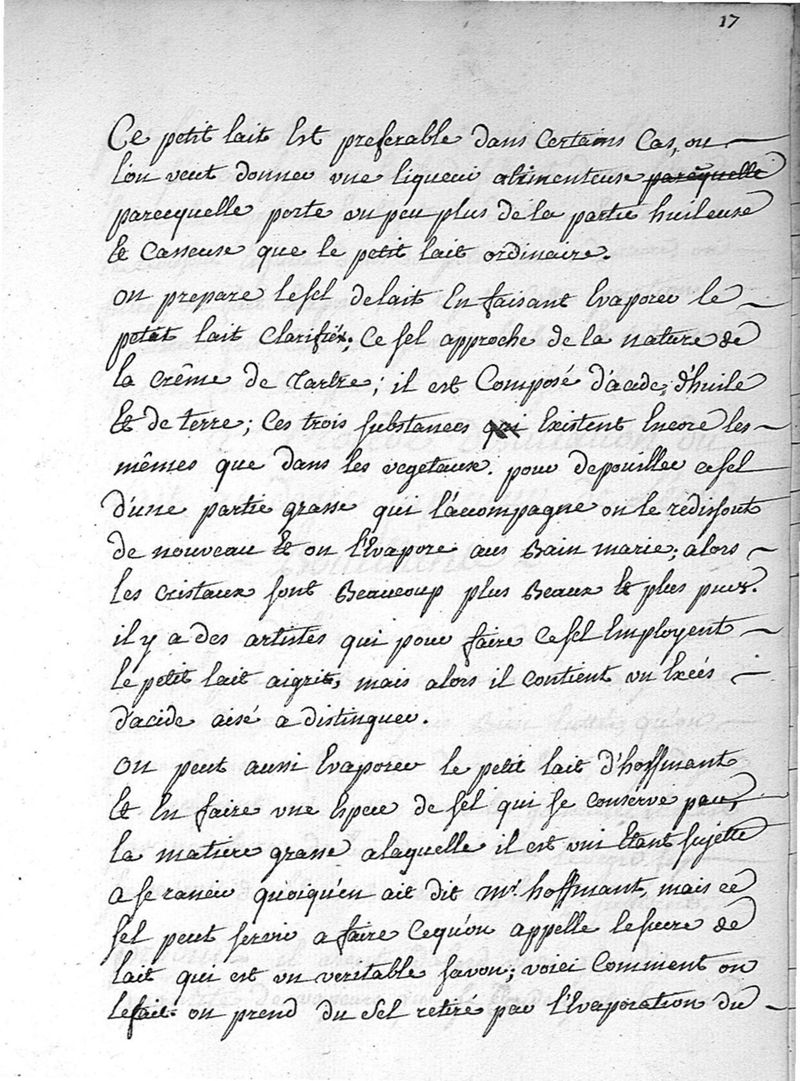 17
Ce petit lait Est preferable dans Certains Cas, ou
l'on veut donner une liqueur alimenteuse parcequelle
parcequelle porte un peu plus de la partie huileuse
Et Casseuse que le petit lait ordinaire.
on prepare le sel de lait En faisant Evaporer le
petit lait Clarifié; Ce sel approche de la nature de
la crême de Tartre; il est Composé d'acide, d'huile
Et de terre; Ces trois substances qui Existent Encore les
mêmes que dans les vegetaux. pour depouiller ce sel
d'une partie grasse qui l'accompagne on le redissout
de nouveau Et on l'Evapore au Bain marie; alors
les cristaux sont Beaucoup plus Beaux Et plus purs.
il y a des artistes qui pour faire ce sel Employent
le petit lait aigrit, mais alors il contient un Excés
d'acide aisé a distinguer.
on peut aussi Evaporer le petit lait d'hoffmant
Et En faire une Espece de sel qui se conserve peu,
la matiere grasse a laquelle il est uni Etant sujette
a se rancir quoiqu'en ait dit Mr. hoffmant, mais ce
sel peut servir a faire Cequ'on appelle le sucre de
lait qui est un veritable savon; voici Comment on
le fait. on prend du Sel retiré par l'Evaporation du